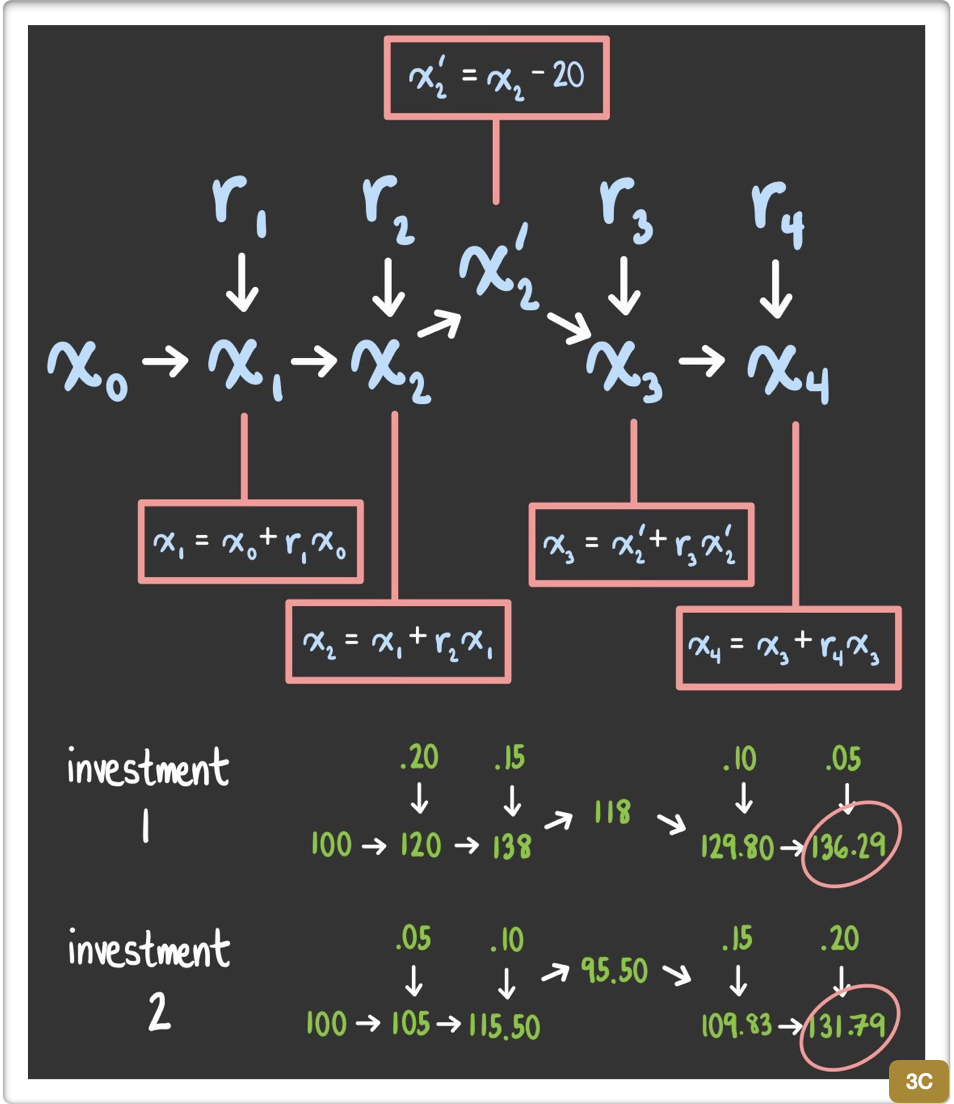 x₂′ = x₂ - 20
r₁ r₂ r₃ r₄
x₂′
x₀ → x₁ → x₂ x₃ → x₄
x₁ = x₀ + r₁x₀
x₃ = x₂′ + r₃x₂′
x₂ = x₁ + r₂x₁
x₄ = x₃ + r₄x₃
investment
1
.20 .15 .10 .05
118
100 → 120 → 138 129.80 → 136.29
investment
2
.05 .10 .15 .20
95.50
100 → 105 → 115.50 109.83 → 131.79
3C